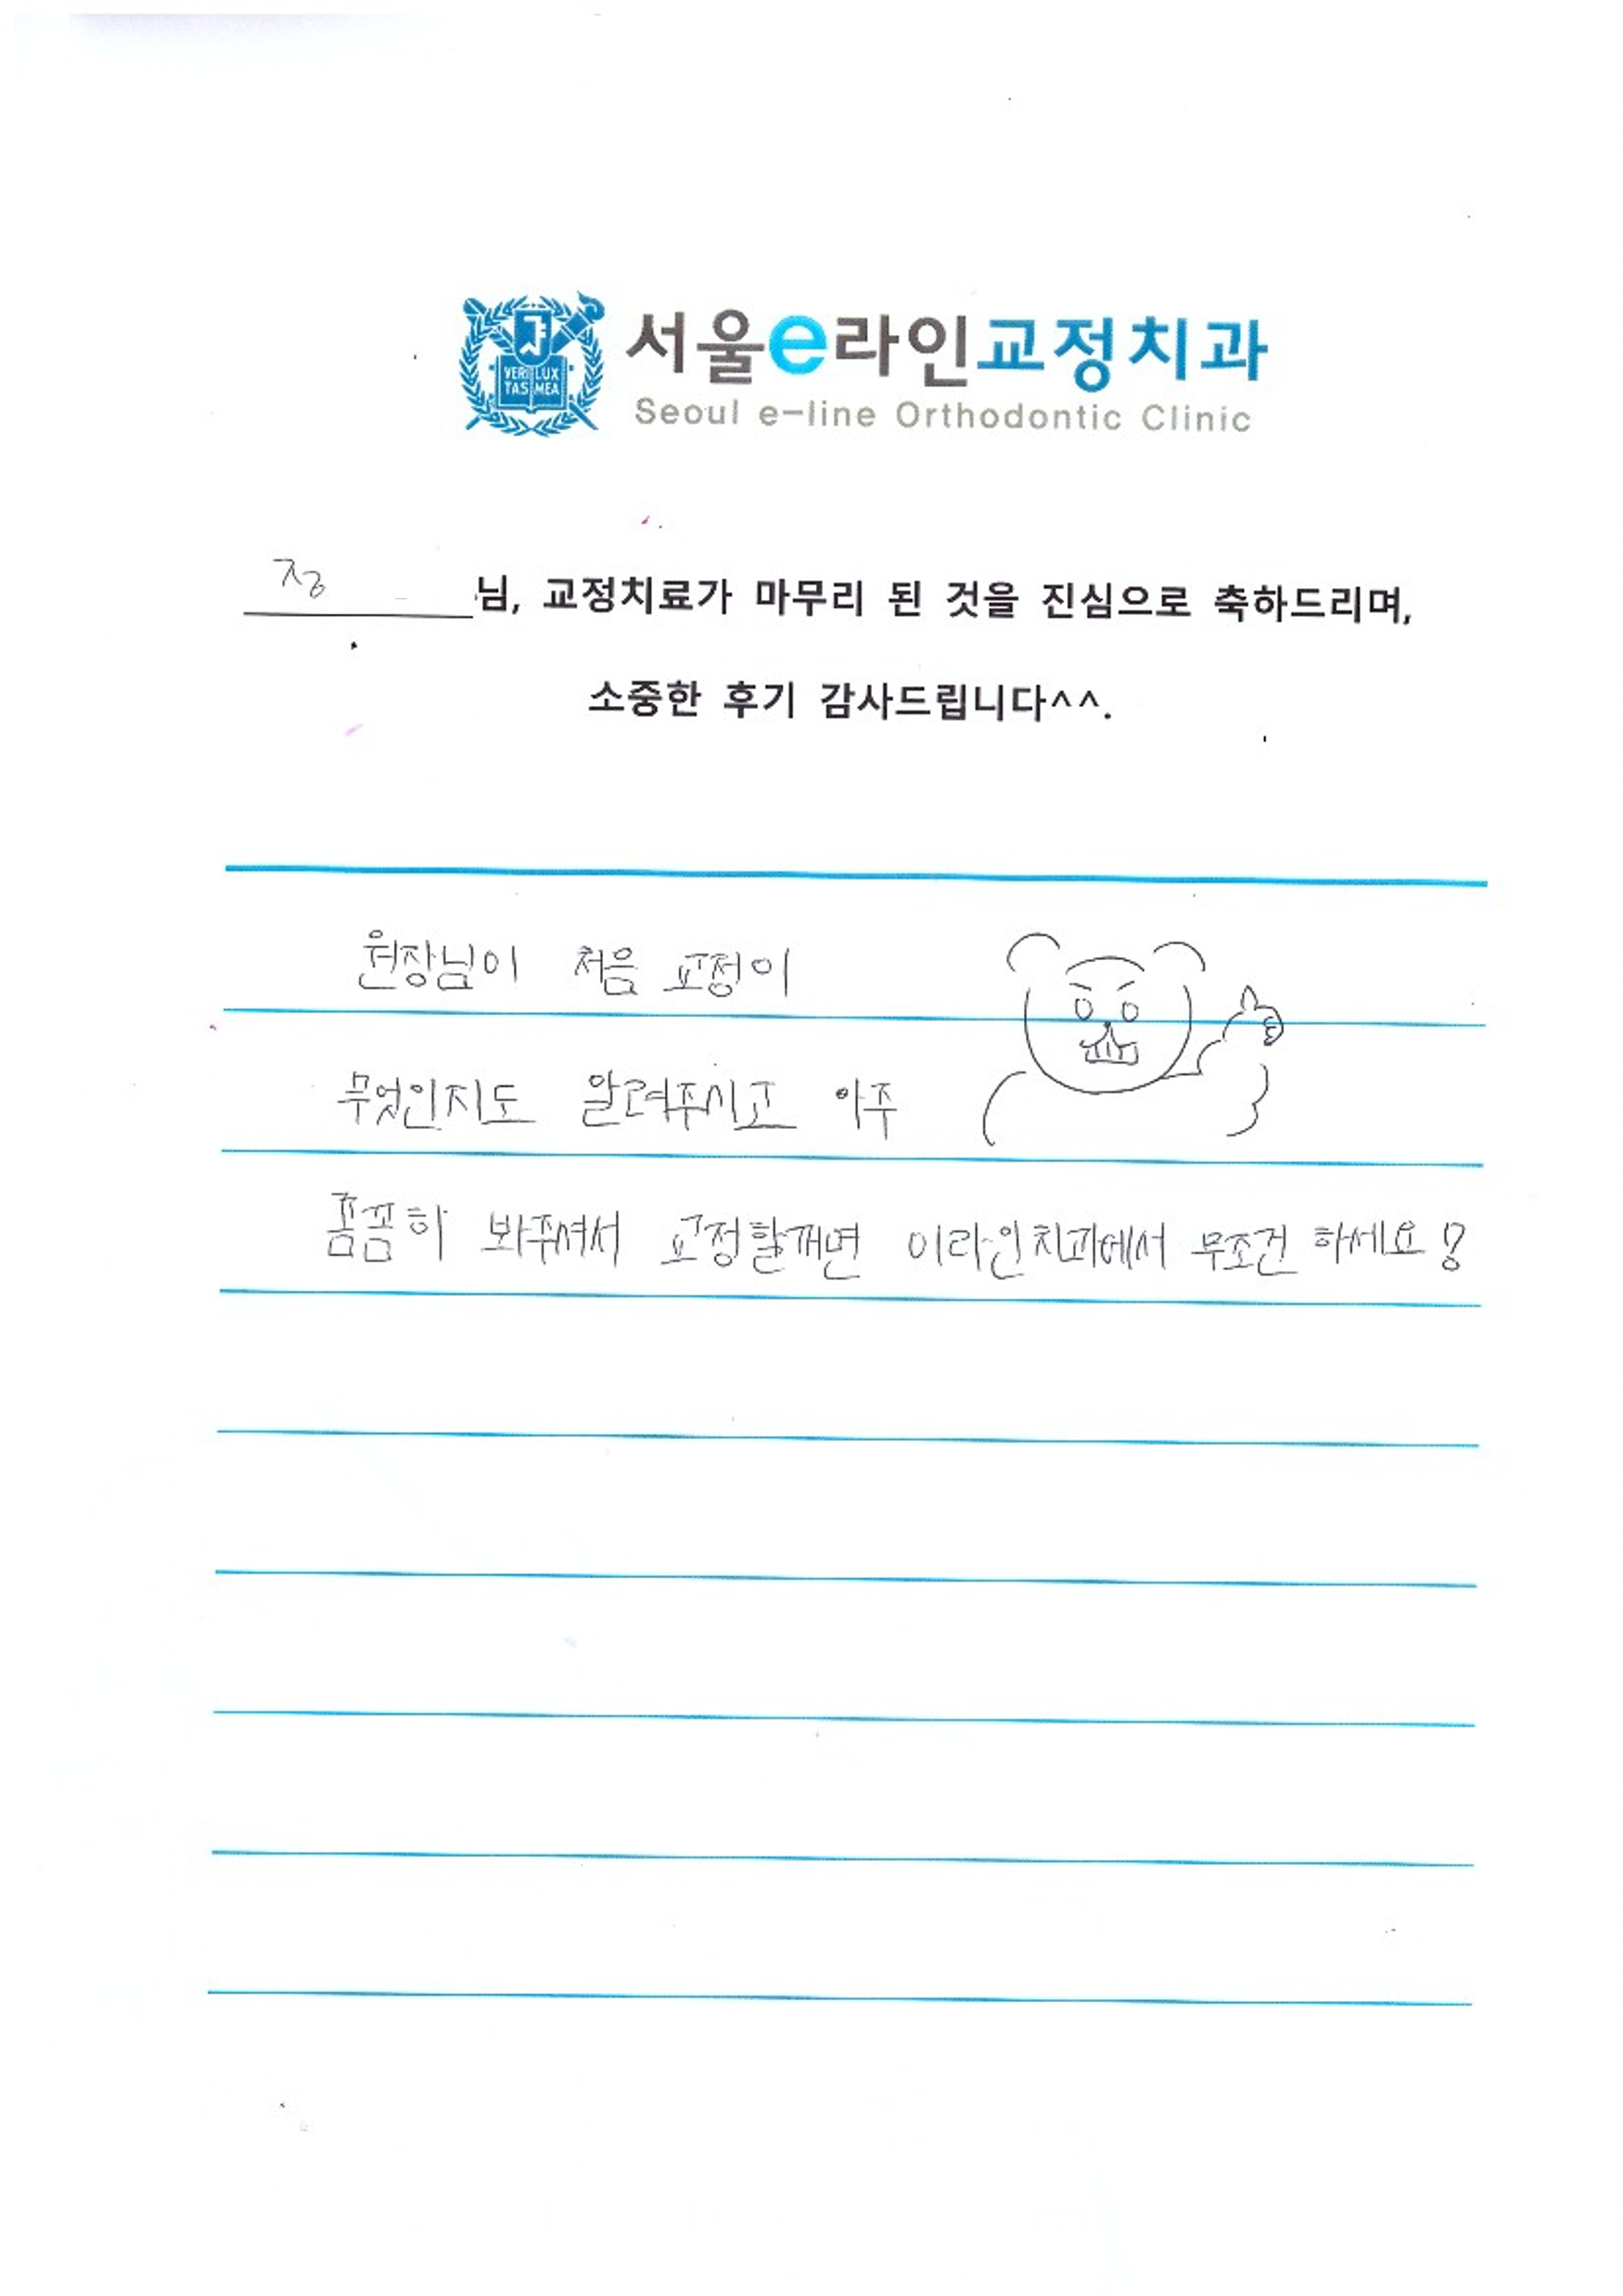 VERI LUX
TAS MEA
서울e라인교정치과
Seoul e-line Orthodontic Clinic
정 님, 교정치료가 마무리 된 것을 진심으로 축하드리며,
소중한 후기 감사드립니다^^.
원장님이 처음 교정이
무엇인지도 알려주시고 아주
꼼꼼히 봐주셔서 교정할꺼면 이라인치과에서 무조건 하세요!